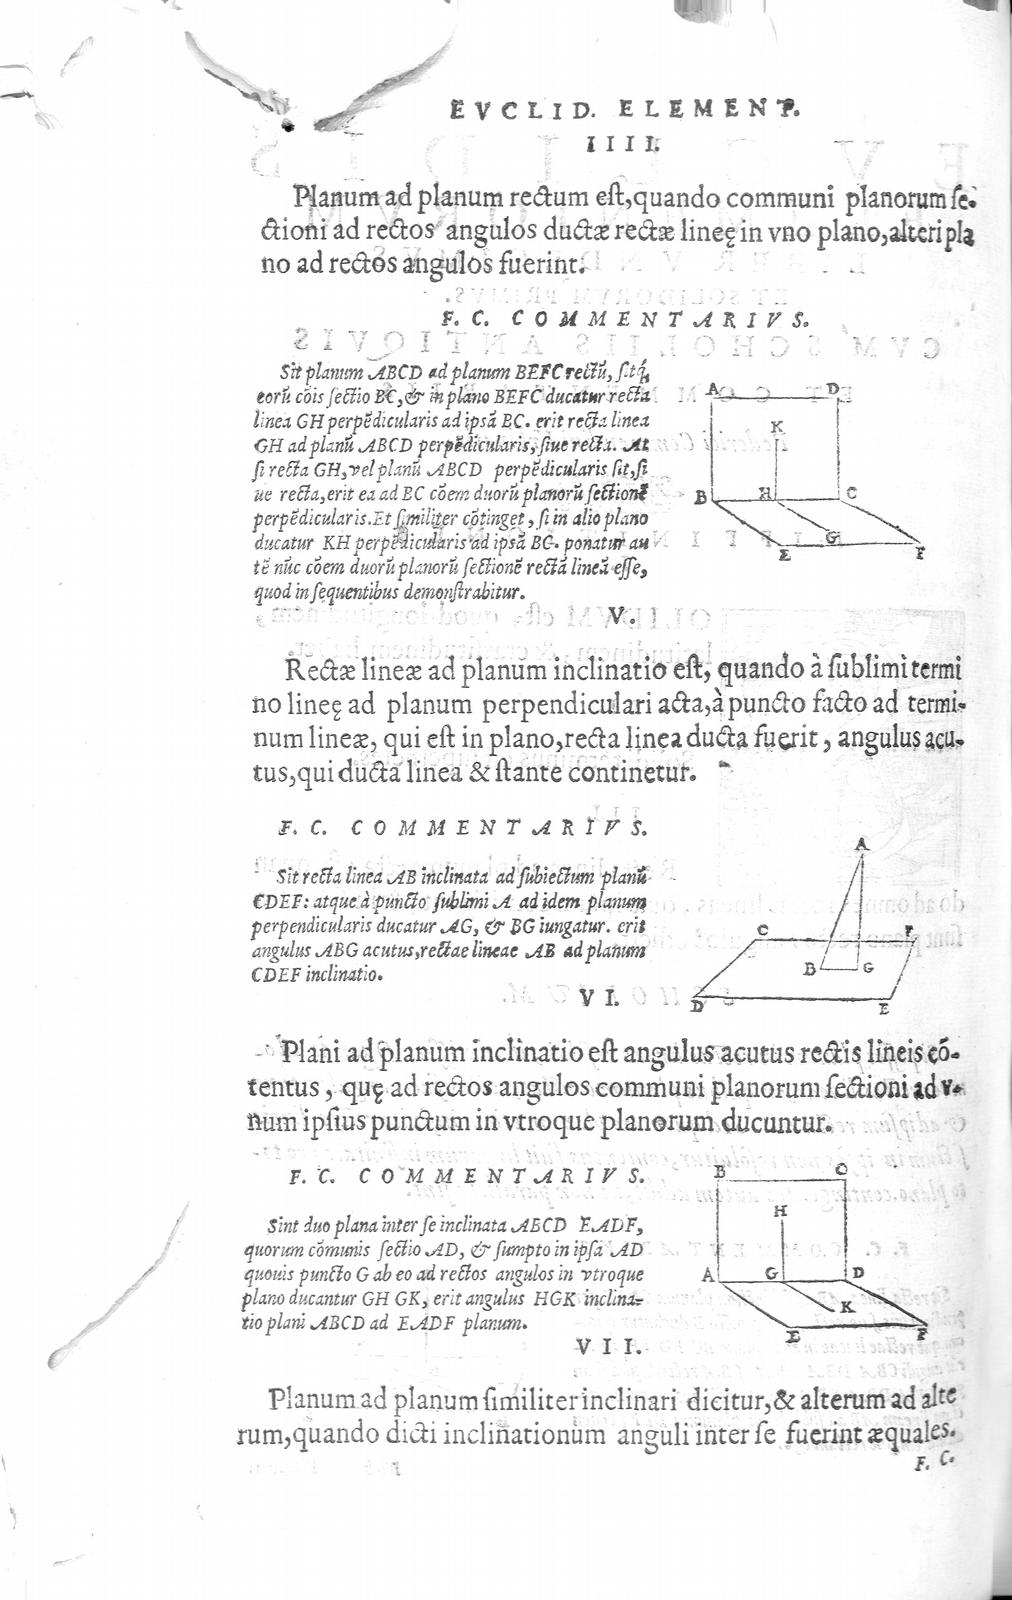 EVCLID. ELEMENT.
IIII.
Planum ad planum rectum est, quando communi planorum se-
ctioni ad rectos angulos ductæ rectæ lineę in vno plano, alteri pla
no ad rectos angulos fuerint.
F. C. COMMENTARIVS.
Sit planum ABCD ad planum BEFC rectũ, sitq́;
eorũ cõis sectio BC, & in plano BEFC ducatur recta
linea GH perpẽdicularis ad ipsã BC. erit recta linea
GH ad planũ ABCD perpẽdicularis, siue recta. At
si recta GH, vel planũ ABCD perpẽdicularis sit, si
ue recta, erit ea ad BC cõem duorũ planorũ sectionẽ
perpẽdicularis. Et similiter cõtinget, si in alio plano
ducatur KH perpẽdicularis ad ipsã BC. ponatur au
tẽ nũc cõem duorũ planorũ sectionẽ rectã lineã esse,
quod in sequentibus demonstrabitur.
A D
K
B H C
G
E F
V.
Rectæ lineæ ad planum inclinatio est, quando à sublimi termi
no lineę ad planum perpendiculari acta, à puncto facto ad termi-
num lineæ, qui est in plano, recta linea ducta fuerit, angulus acu-
tus, qui ducta linea & stante continetur.
F. C. COMMENTARIVS.
Sit recta linea AB inclinata ad subiectum planũ
CDEF: atque à puncto sublimi A ad idem planum
perpendicularis ducatur AG, & BG iungatur. erit
angulus ABG acutus, rectae lineae AB ad planum
CDEF inclinatio.
A
C F
B G
D E
VI.
Plani ad planum inclinatio est angulus acutus rectis lineis cõ-
tentus, quę ad rectos angulos communi planorum sectioni ad v-
num ipsius punctum in vtroque planorum ducuntur.
F. C. COMMENTARIVS.
Sint duo plana inter se inclinata ABCD EADF,
quorum cõmunis sectio AD, & sumpto in ipsa AD
quouis puncto G ab eo ad rectos angulos in vtroque
plano ducantur GH GK, erit angulus HGK inclina-
tio plani ABCD ad EADF planum.
B C
H
A G D
K
E F
VII.
Planum ad planum similiter inclinari dicitur, & alterum ad alte
rum, quando dicti inclinationum anguli inter se fuerint æquales.
F. C.